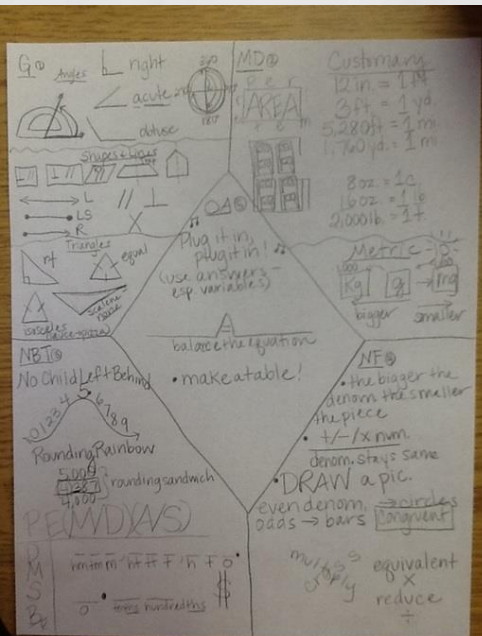 G
Angles
right
acute
obtuse
Shapes & Lines
L
LS
R
Triangles
rt
equal
scalene
isosceles
MD
AREA
Customary
12 in. = 1 ft
3 ft. = 1 yd.
5,280 ft = 1 mi.
1,760 yd. = 1 mi
8 oz. = 1 c.
16 oz = 1 lb
2,000 lb. = 1 t.
Metric
Kg
g
mg
bigger
smaller
OA
Plug it in,
plug it in!
(use answers
esp. variables)
balance the equation
• make a table!
NBT
No Child Left Behind
0 1 2 3 4 5 6 7 8 9
Rounding Rainbow
5,000
4,000
rounding sandwich
PE(M/D)(A/S)
D
M
S
B
tenths hundredths
$
NF
• the bigger the
denom the smaller
the piece
• +/-/x num
denom. stays same
• DRAW a pic.
even denom. → circles
odds → bars
Congruent
cross
multiply
equivalent
x
reduce
÷